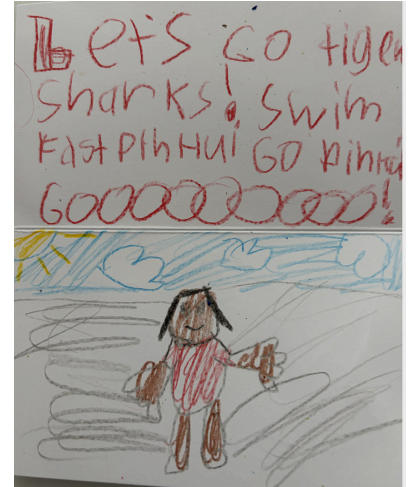 Let's Go tiger
Sharks! Swim
Fast PinHui GO PinHui
GOOOOOOOOOO!